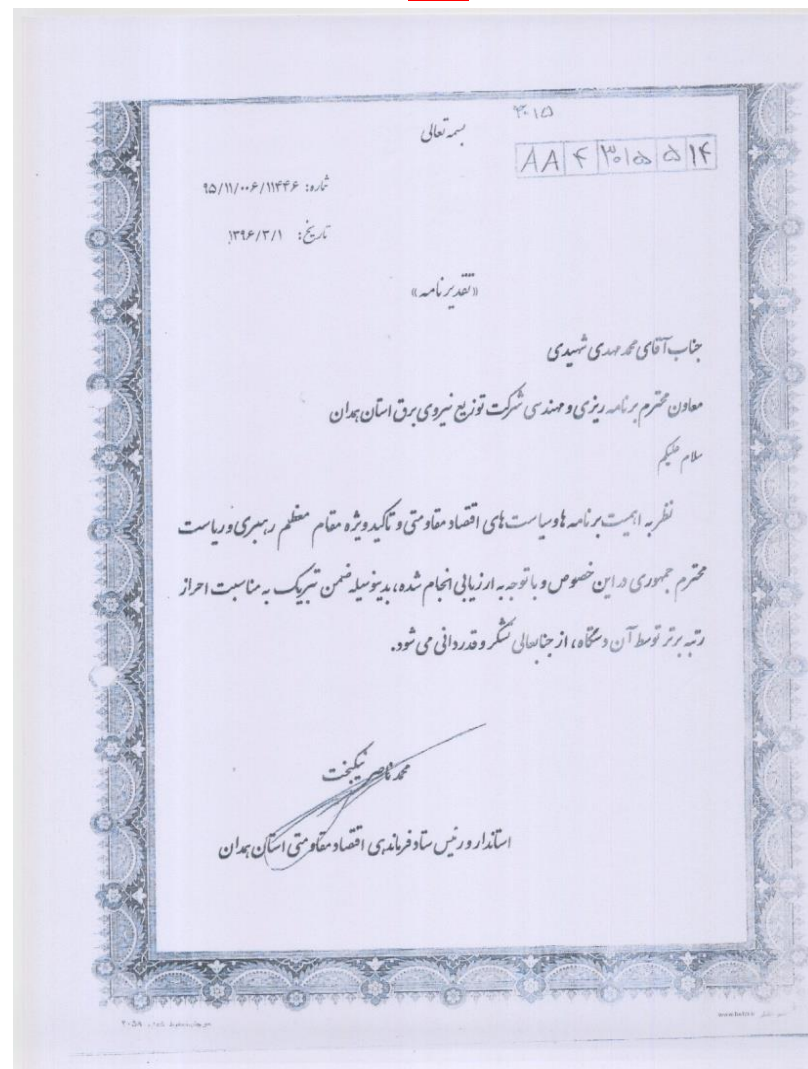 ۳۰۱۵
بسمه تعالی
AA ۴ ۳۰۱۵ ۵ ۱۴
شماره: ۹۵/۱۱/۰۰۶/۱۱۴۴۶
تاریخ: ۱۳۹۶/۳/۱
«تقدیرنامه»
جناب آقای محمد مهدی شهیدی
معاون محترم برنامه ریزی و مهندسی شرکت توزیع نیروی برق استان همدان
سلام علیکم
نظر به اهمیت برنامه ها و سیاست های اقتصاد مقاومتی و تاکید ویژه مقام معظم رهبری و ریاست
محترم جمهوری در این خصوص و با توجه به ارزیابی انجام شده، بدینوسیله ضمن تبریک به مناسبت احراز
رتبه برتر توسط آن دستگاه، از جنابعالی تشکر و قدردانی می شود.
محمد ناصر نیکبخت
استاندار و رئیس ستاد فرماندهی اقتصاد مقاومتی استان همدان